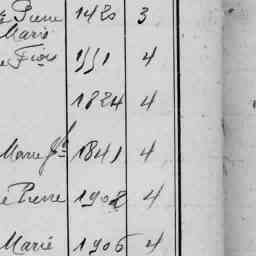 Pierre 1420 3
Marie
Fçois 1551 4
1824 4
Marie Jh 1841 4
Pierre 1902 4
Marie 1906 4